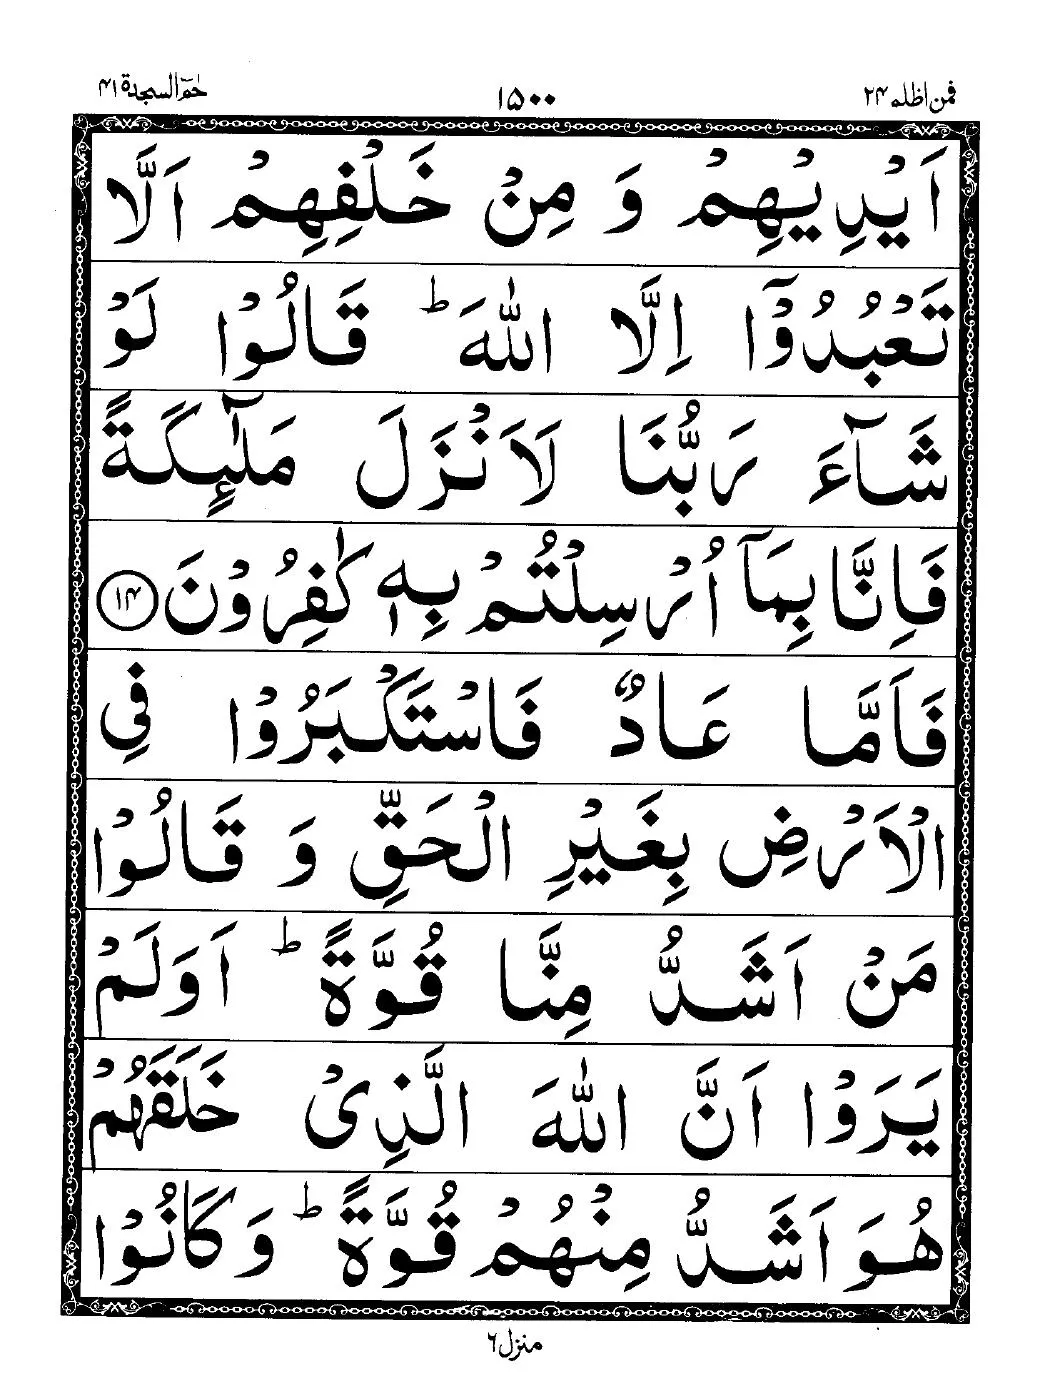 فمن اظلم ۲۴ ۱۵۰۰ حٰمٓ السجدة ۴۱
اَيْدِيْهِمْ وَ مِنْ خَلْفِهِمْ اَلَّا
تَعْبُدُوْۤا اِلَّا اللّٰهَ ؕ قَالُوْا لَوْ
شَآءَ رَبُّنَا لَاَنْزَلَ مَلٰٓىِٕكَةً
فَاِنَّا بِمَاۤ اُرْسِلْتُمْ بِهٖ كٰفِرُوْنَ ۱۴
فَاَمَّا عَادٌ فَاسْتَكْبَرُوْا فِي
الْاَرْضِ بِغَيْرِ الْحَقِّ وَ قَالُوْا
مَنْ اَشَدُّ مِنَّا قُوَّةً ؕ اَوَلَمْ
يَرَوْا اَنَّ اللّٰهَ الَّذِيْ خَلَقَهُمْ
هُوَ اَشَدُّ مِنْهُمْ قُوَّةً ؕ وَ كَانُوْا
منزل ۶